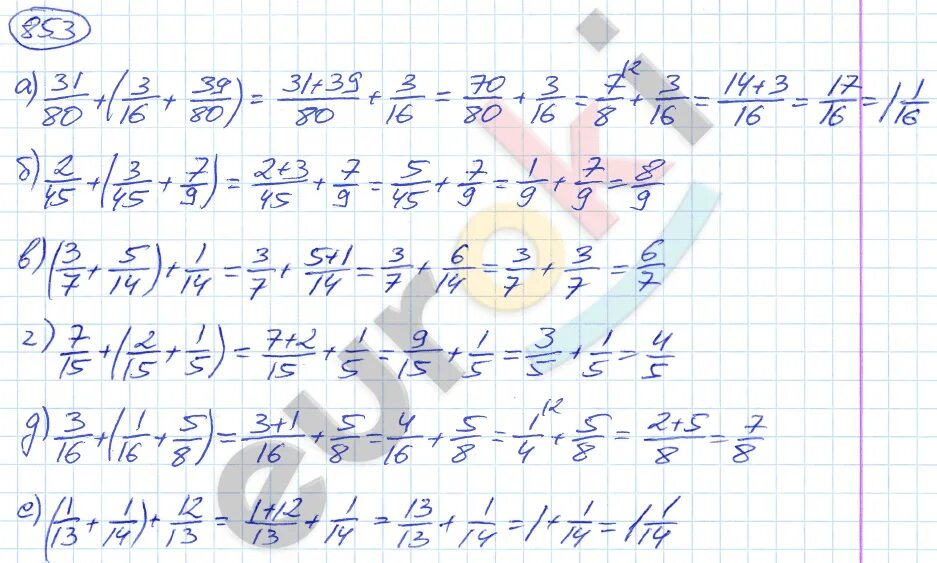 853
а) 31/80 + (3/16 + 39/80) = (31+39)/80 + 3/16 = 70/80 + 3/16 = 7/8 |2 + 3/16 = (14+3)/16 = 17/16 = 1 1/16
б) 2/45 + (3/45 + 7/9) = (2+3)/45 + 7/9 = 5/45 + 7/9 = 1/9 + 7/9 = 8/9
в) (3/7 + 5/14) + 1/14 = 3/7 + (5+1)/14 = 3/7 + 6/14 = 3/7 + 3/7 = 6/7
г) 7/15 + (2/15 + 1/5) = (7+2)/15 + 1/5 = 9/15 + 1/5 = 3/5 + 1/5 = 4/5
д) 3/16 + (1/16 + 5/8) = (3+1)/16 + 5/8 = 4/16 + 5/8 = 1/4 |2 + 5/8 = (2+5)/8 = 7/8
е) (1/13 + 1/14) + 12/13 = (1+12)/13 + 1/14 = 13/13 + 1/14 = 1 + 1/14 = 1 1/14
euroki